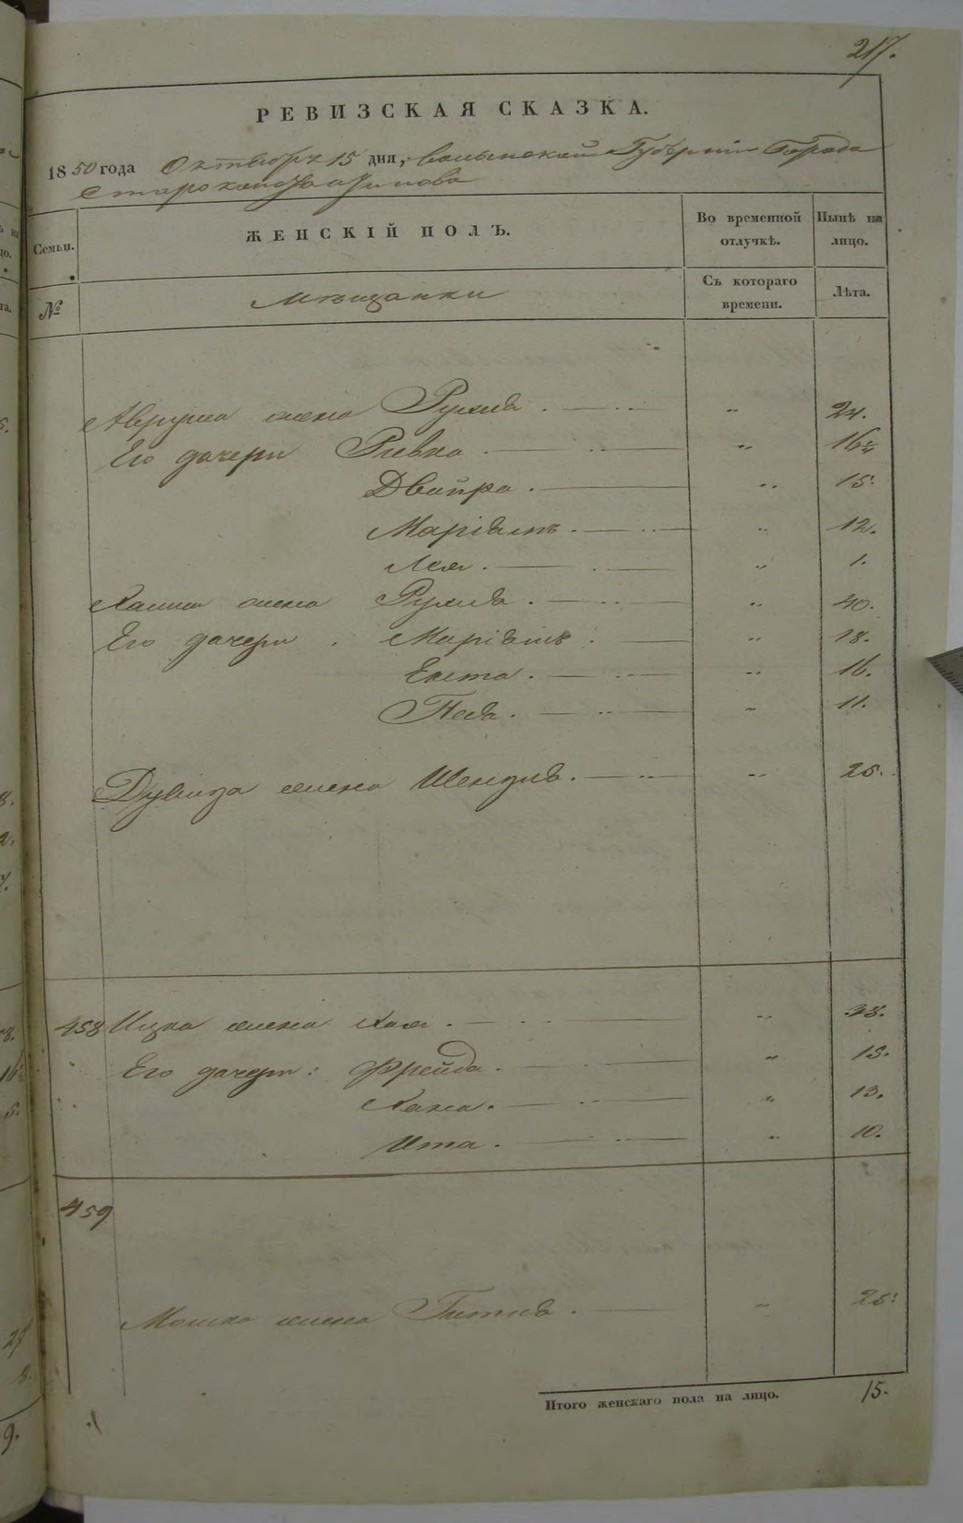 217.
РЕВИЗСКАЯ СКАЗКА.
1850 года Октября 15 дня, Волынской Губерніи Города
Староконстантинова
Семьи. ЖЕНСКІЙ ПОЛЪ. Во временной отлучкѣ. Нынѣ на лицо.
№ Мѣщанки Съ котораго времени. Лѣта.
жена Рухля . „ 24.
Его дочери Ривка „ 16½
Двойра . „ 15.
Маріямъ . „ 12.
Лея . „ 1.
жена Рухля . „ 40.
Его дочери . Маріямъ . „ 18.
Ента . „ 16.
Песя . „ 11.
Дувида жена Шендля . „ 25.
458 Ицка жена Хая . „ 38.
Его дочери : Фрейда . „ 15.
Хана . „ 13.
Ита . „ 10.
459
Мошка жена Гитля . „ 25.
Итого женскаго пола на лицо. 15.